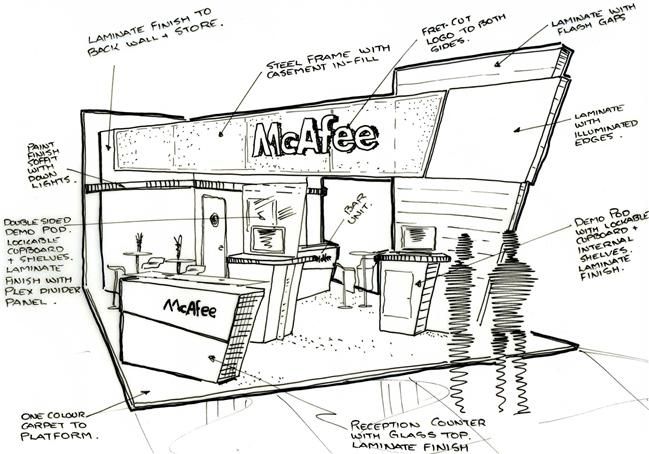 LAMINATE FINISH TO
BACK WALL + STORE.
STEEL FRAME WITH
CASEMENT IN-FILL
FRET-CUT
LOGO TO BOTH
SIDES.
LAMINATE WITH
FLASH GAPS
LAMINATE
WITH
ILLUMINATED
EDGES.
McAfee
PAINT
FINISH
SOFFIT
WITH
DOWN
LIGHTS.
BAR
UNIT.
DOUBLE SIDED
DEMO POD.
LOCKABLE
CUPBOARD
+ SHELVES.
LAMINATE
FINISH WITH
PLEX DIVIDER
PANEL.
DEMO POD
WITH LOCKABLE
CUPBOARD +
INTERNAL
SHELVES.
LAMINATE
FINISH.
McAfee
McAfee
ONE COLOUR
CARPET TO
PLATFORM.
RECEPTION COUNTER
WITH GLASS TOP.
LAMINATE FINISH